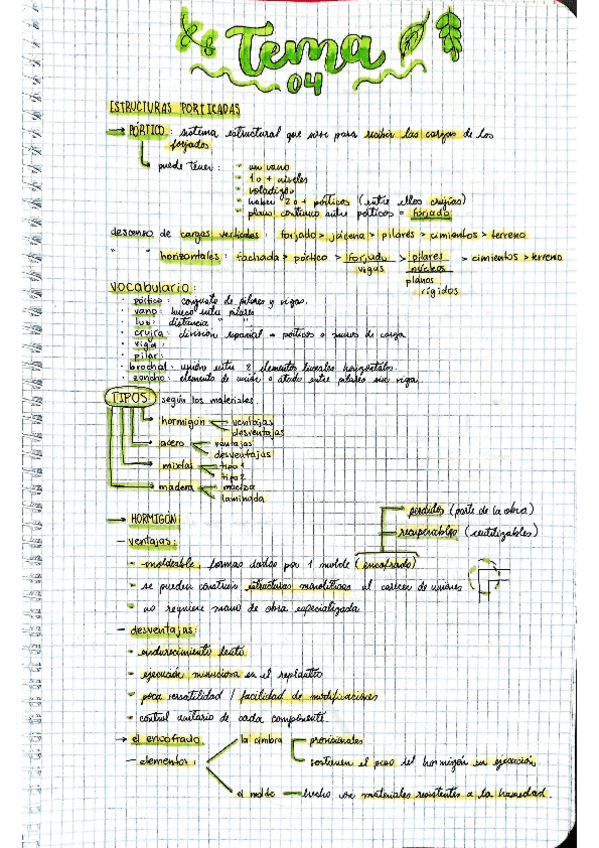 Tema
04
ESTRUCTURAS PORTICADAS
→ PÓRTICO: sistema estructural que sirve para recibir las cargas de los
forjados
puede tener: - un vano
- 1 o + niveles
- voladizo
- haber 2 o + pórticos (entre ellos crujías)
- plano continuo entre pórticos = forjado
descenso de cargas verticales: forjado > jácena > pilares > cimientos > terreno
" " horizontales: fachada > pórtico > forjado > pilares > cimientos > terreno
vigas núcleos
planos
rígidos
vocabulario:
· pórtico: conjunto de pilares y vigas.
· vano: hueco entre pilares
· luz: distancia " "
· crujía: división espacial = pórticos o muros de carga
· viga:
· pilar:
· brochal: unión entre 2 elementos lineales horizontales.
· zuncho: elemento de unión o atado entre pilares sin viga.
TIPOS según los materiales
→ hormigón ventajas
desventajas
→ acero ventajas
desventajas
→ mixtas tipo 1
tipo 2
→ madera maciza
laminada
→ HORMIGÓN
perdidos (parte de la obra)
recuperables (reutilizables)
- ventajas:
- moldeable, formas dadas por 1 molde (encofrado)
- se pueden construir estructuras monolíticas al carecer de uniones
- no requiere mano de obra especializada
- desventajas:
- endurecimiento lento
- ejecución minuciosa en el replanteo
- poca versatilidad / facilidad de modificaciones
- control unitario de cada componente
→ el encofrado
- elementos:
la cimbra provisionales
sostienen el peso del hormigón en ejecución
el molde — hecho de materiales resistentes a la humedad.